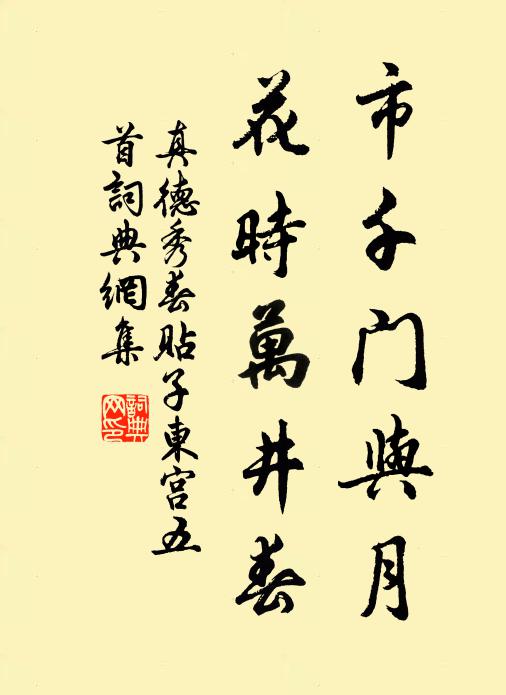 市千門與月
花時萬井春
真德秀春貼子東宮五
首詞典網集
詞典
网印